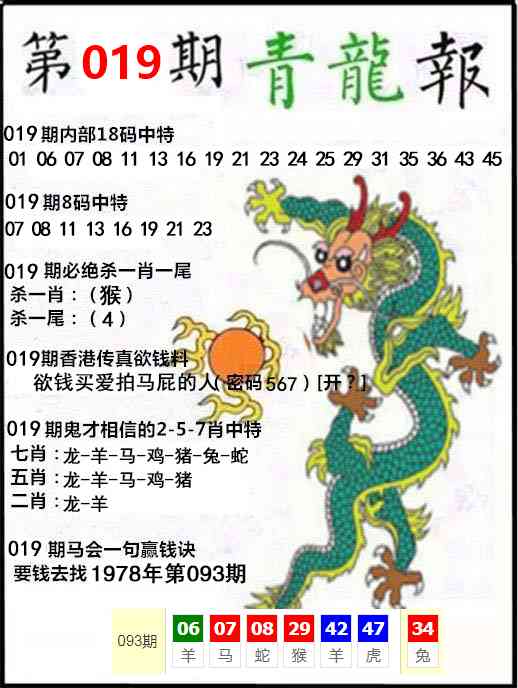 第019期青龍報
019期内部18码中特
01 06 07 08 11 13 16 19 21 23 24 25 29 31 35 36 43 45
019期8码中特
07 08 11 13 16 19 21 23
019 期必绝杀一肖一尾
杀一肖：（猴）
杀一尾：（4）
019期香港传真欲钱料
欲钱买爱拍马屁的人（密码567）[开？]
019期鬼才相信的2-5-7肖中特
七肖：龙-羊-马-鸡-猪-兔-蛇
五肖：龙-羊-马-鸡-猪
二肖：龙-羊
019 期马会一句赢钱诀
要钱去找1978年第093期
093期 06 07 08 29 42 47 34
羊 马 蛇 猴 羊 虎 兔